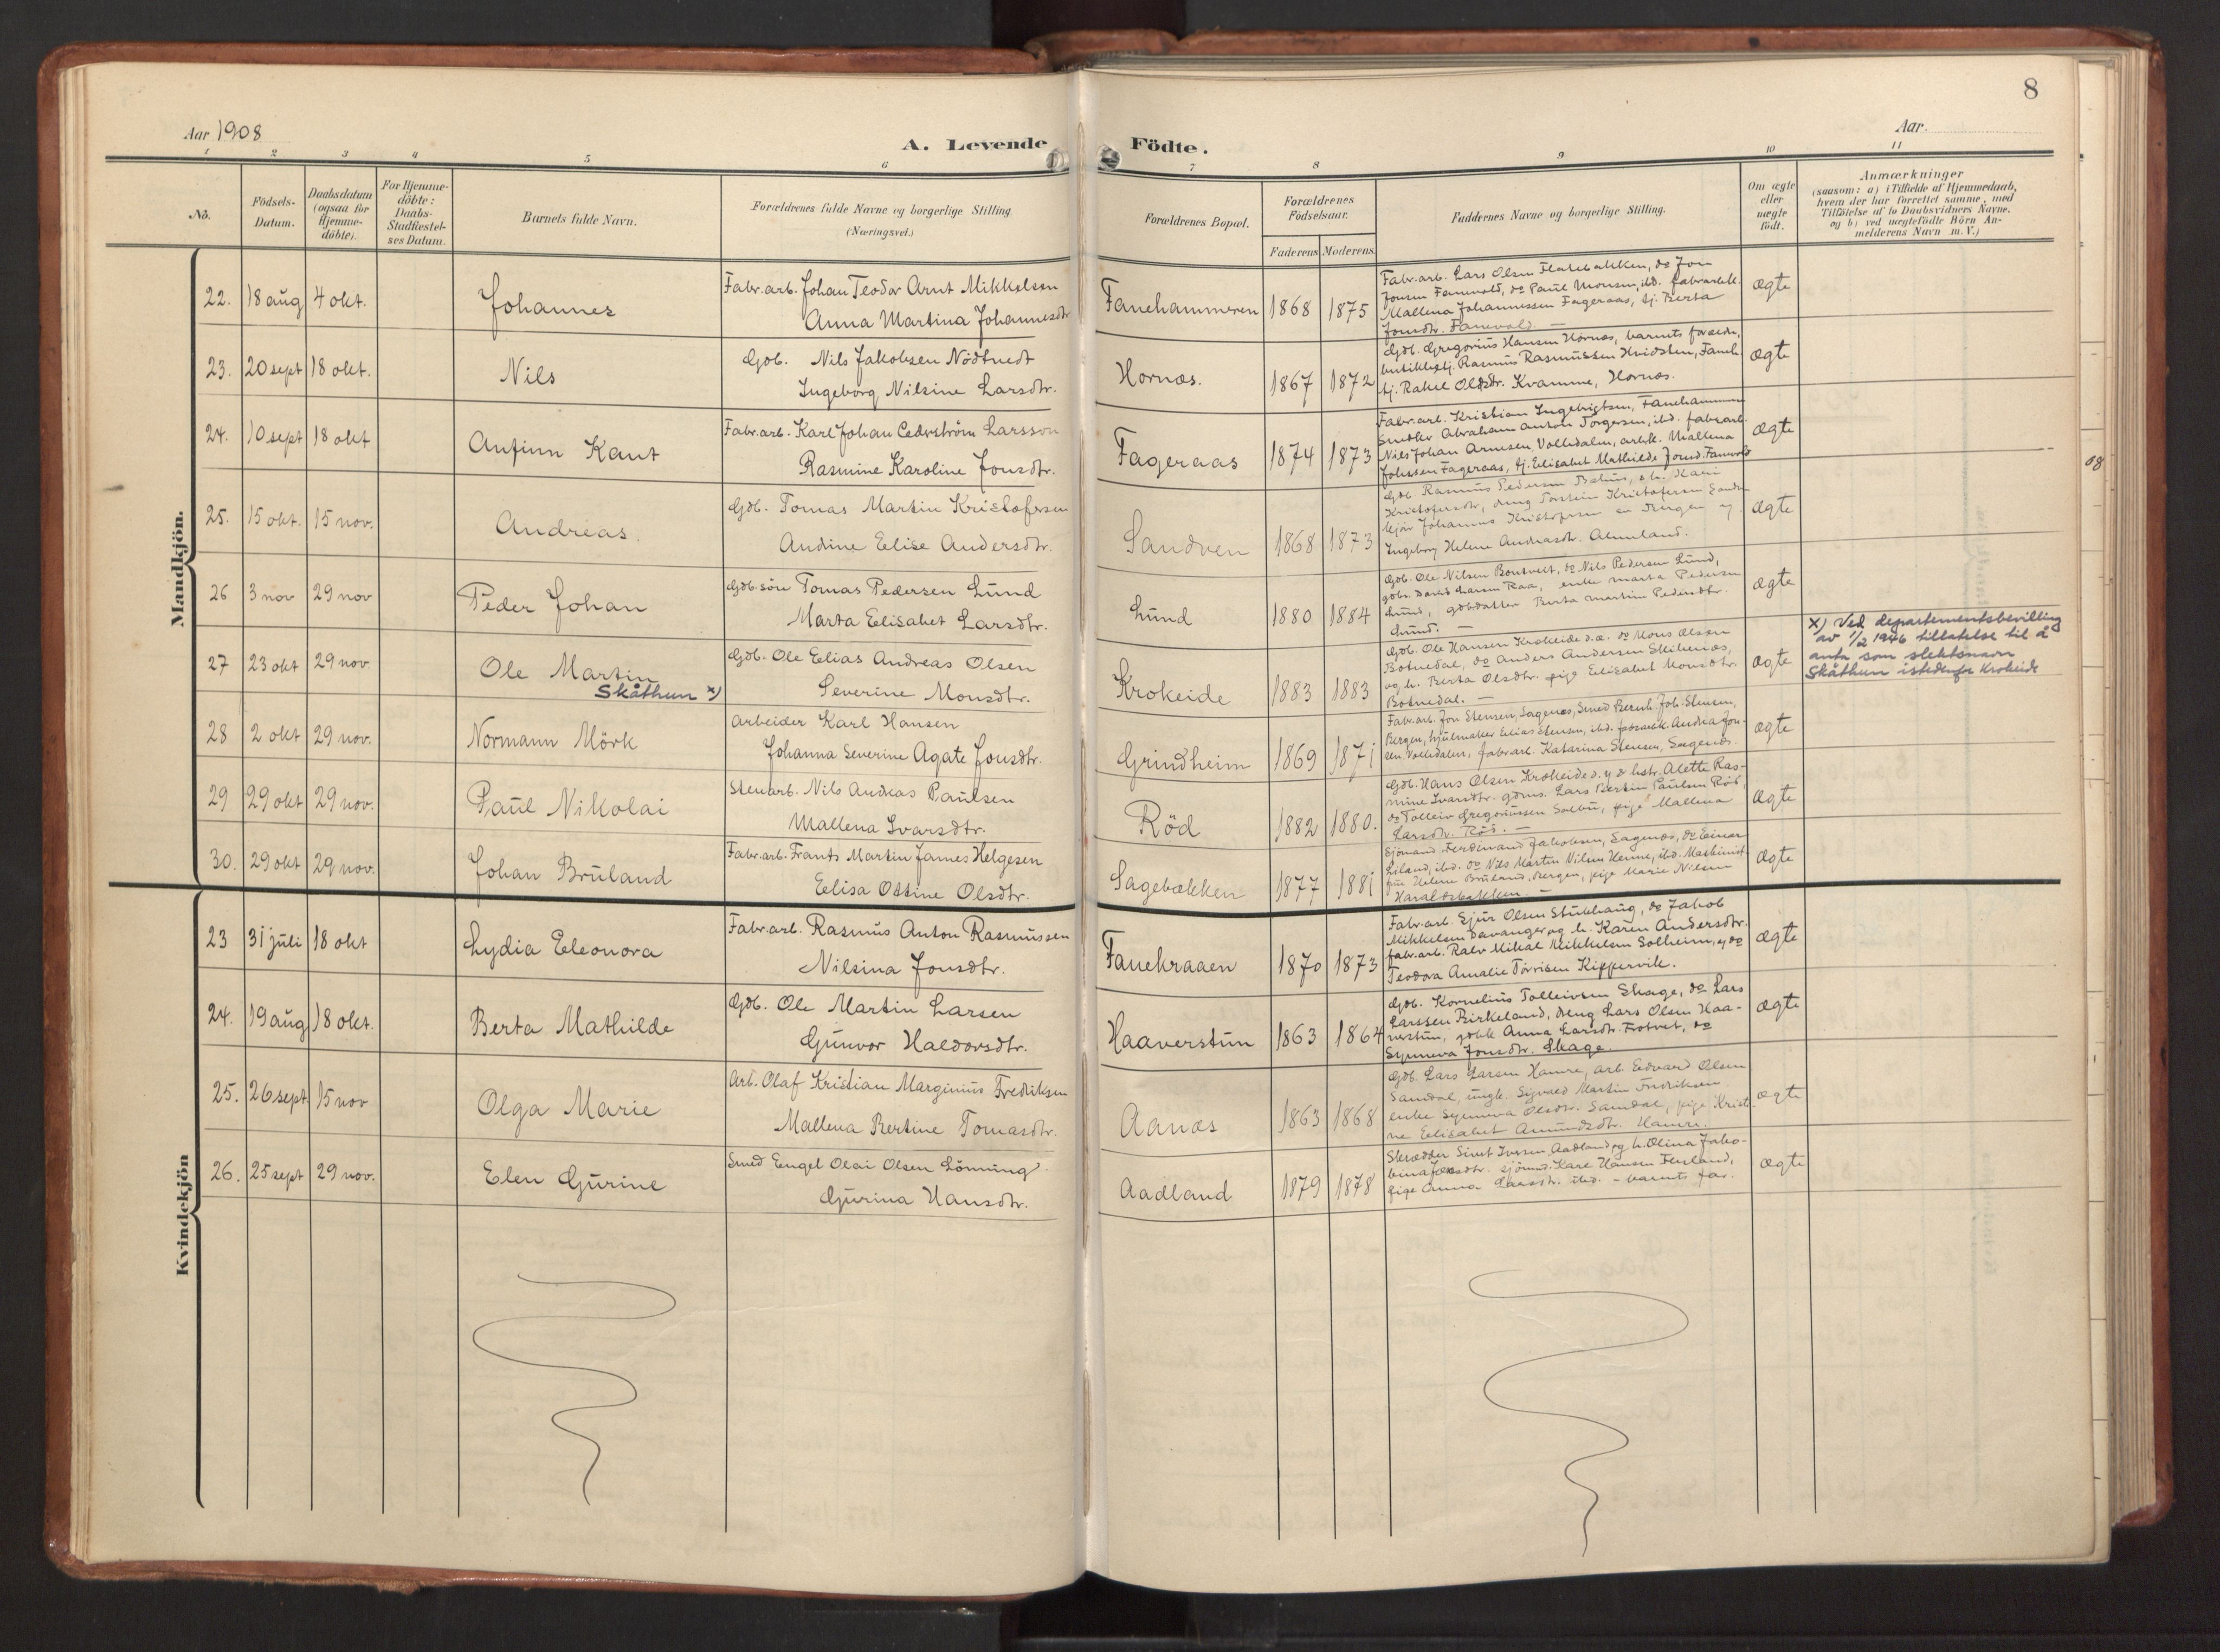 8
Aar 1908
A. Levende
Födte.
Aar.
1 2 3 4 5 6 7 8 9 10 11
No.
Födsels-
Datum.
Daabsdatum
(ogsaa for
Hjemme-
döbte).
For Hjemme-
döbte:
Daabs-
Stadfæstel-
ses Datum.
Barnets fulde Navn.
Forældrenes fulde Navne og borgerlige Stilling
(Næringsvei.)
Forældrenes Bopæl.
Forældrenes
Födselsaar.
Faderens Moderens
Faddernes Navne og borgerlige Stilling.
Om ægte
eller
uægte
födt.
Anmærkninger
(saasom: a) i Tilfælde af Hjemmedaab,
hvem der har forrettet samme, med
Tilföielse af to Daabsvidners Navne,
og b) ved uægtefödte Börn An-
melderens Navn m. V.)
Mandkjön.
22. 18 aug 4 okt. Johannes
Fabr.arb. Johan Teodor Arnt Mikkelsen
Anna Martina Johannesdtr
Fanehammeren 1868 1875
Fabr.arb. Lars Olsen Flatebakken, do Jon
Jonsen Fanevold, do Paul Monsen, ibd. fabrarbk.
Mallena Johannessen Fageraas, tj. Berta
Jonsdtr. Fanevold. —
ægte
23. 20 sept 18 okt. Nils
Gdb. Nils Jakobsen Nödtvedt
Ingeborg Nilsine Larsdtr.
Hornæs. 1867 1872
Gdb. Gregorius Hansen Hornæs, barnets forældr.,
butikbestj. Rasmus Rasmussen Kvidsten, Faneh.
tj. Rakel Olsdtr. Kvamme, Hornæs.
ægte
24. 10 sept 18 okt Anfinn Kaut
Fabr.arb. Karl Johan Cederström Larsson
Rasmine Karoline Jonsdtr.
Fageraas 1874 1873
Fabr.arb. Kristian Ingebrigtsen, Fanehammeren
Snedker Abraham Anton Torgersen, ibd. fabrarb.
Nils Johan Arnesen, Volledalen, arbk. Mallena
Johssen Fageraas, tj. Elisabet Mathilde Jonsd. Fanevold
ægte
25. 15 okt. 15 nov. Andreas.
Gdb. Tomas Martin Kristofersen
Andine Elise Andersdtr.
Sandven 1868 1873
Gdb. Rasmus Pedersen Bahus, og h. Kari
Kristofersdtr, dreng Torstein Kristofersen Sandv.
Johannes Kristofersen Bergen og
Ingeborg Helene Andreasdtr. Almeland.
ægte
26 3 nov 29 nov Peder Johan
Gdb.sön Tomas Pedersen Lund
Marta Elisabet Larsdtr.
Lund 1880 1884
Gdb. Ole Nilsen Bontveit, do Nils Pedersen Lund,
gdbs. David Larsen Raa, enke Marta Pedersen
Lund, gdbdatter Berta Martine Pedersdtr.
Lund. —
ægte
27 23 okt 29 nov. Ole Martin
Skåthun x)
Gdb. Ole Elias Andreas Olsen
Severine Monsdtr.
Krokeide 1883 1883
Gdb. Ole Hansen Krokeide d.æ. do Mons Olsen
Botnedal, do Anders Andersen Skibenæs,
og h. Berta Olsdtr. pige Elisabet Monsdtr.
Botnedal. —
ægte
x) Ved departementsbevilling
av 1/2 1946 tillatelse til å
anta som slektsnavn
Skåthun istedenfor Krokeide
28 2 okt 29 nov. Normann Mörk
Arbeider Karl Hansen
Johanna Severine Agate Jonsdtr.
Grindheim 1869 1871
Fabr.arb. Jon Stensen, Sagenæs, Smed Bernh. Joh. Stensen,
Bergen, hjulmaker Elias Stensen, ibd. fabrarbk. Andrea Jon-
sen Volledalen, fabrarb. Katarina Stensen, Sagenæs.
ægte
29 29 okt 29 nov. Paul Nikolai
Stenarb. Nils Andreas Paulsen
Mallena Ivarsdtr.
Röd 1882 1880.
Gdb. Hans Olsen Krokeide d. y. & hstr. Alette Ras-
mine Ivarsdtr. gdms. Lars Bertin Paulsen Röd,
do Tolleiv Gregoriussen Solbu, pige Mallena
Larsdtr. Röd. —
ægte
30. 29 okt 29 nov. Johan Bruland
Fabr.arb. Frants Martin James Helgesen
Elisa Ottine Olsdtr.
Sagebækken 1877 1881
Sjömand Ferdinand Jakobsen, Sagenæs, do Einar
Liland, ibd. do Nils Martin Nilsen Henne, ibd. Maskinist-
frue Helene Bruland, Bergen, pige Marie Nilsen
Haraldsbakken. —
ægte
Kvindekjön
23 31 juli 18 okt Lydia Eleonora
Fabr.arb. Rasmus Anton Rasmussen
Nilsina Jonsdtr.
Fanekraaen 1870 1873
Fabr.arb. Sjur Olsen Stubhaug, do Jakob
Mikkelsen Davanger og h. Karen Andersdtr.
fabr.arb. Ralv Mikal Mikkelsen Solheim, og do
Teodora Amalie Torrisen Kippervik.
ægte
24. 19 aug 18 okt. Berta Mathilde
Gdb. Ole Martin Larsen
Gunvor Haldorsdtr.
Haaverstun 1863 1864
Gdb. Kornelius Tolleivsen Skage, do Lars
Larssen Birkeland, dreng Lars Olsen Haa-
verstun, gdbk Anna Larsdtr. Frotveit, do
Synneva Jonsdtr. Skage.
ægte
25. 26 sept 15 nov Olga Marie
Arb. Olaf Kristian Marginius Frediksen
Mallena Bertine Tomasdtr.
Aanæs 1863 1868
Gdb. Lars Larsen Hamre, arb. Edvard Olsen
Samdal, ungk. Sigvald Martin Fredriksen
enke Synneva Olsdtr. Samdal, pige Kristi-
ne Elisabet Amundsdtr. Hamre.
ægte
26. 25 sept 29 nov. Elen Gurine
Smed Engel Olai Olsen Lönning
Gurina Hansdtr.
Aadland 1879 1878
Skrædder Sivert Iversen Aadland og h. Olina Jako-
bina Jonsdtr. sjömd. Karl Hansen Flesland,
pige Anna Larsdtr. ibd. – barnets far.
ægte
08